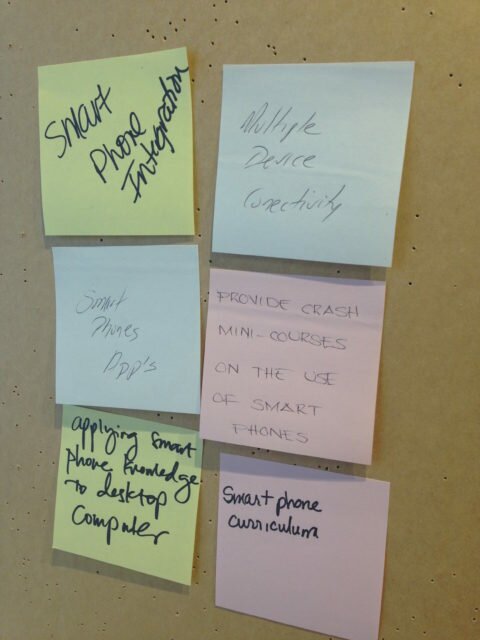 Smart
Phone
Integration
Multiple
Device
Conectivity
Smart
Phones
App's
PROVIDE CRASH
MINI-COURSES
ON THE USE
OF SMART
PHONES
applying smart
phone knowledge
to desktop
computer
Smart phone
curriculum